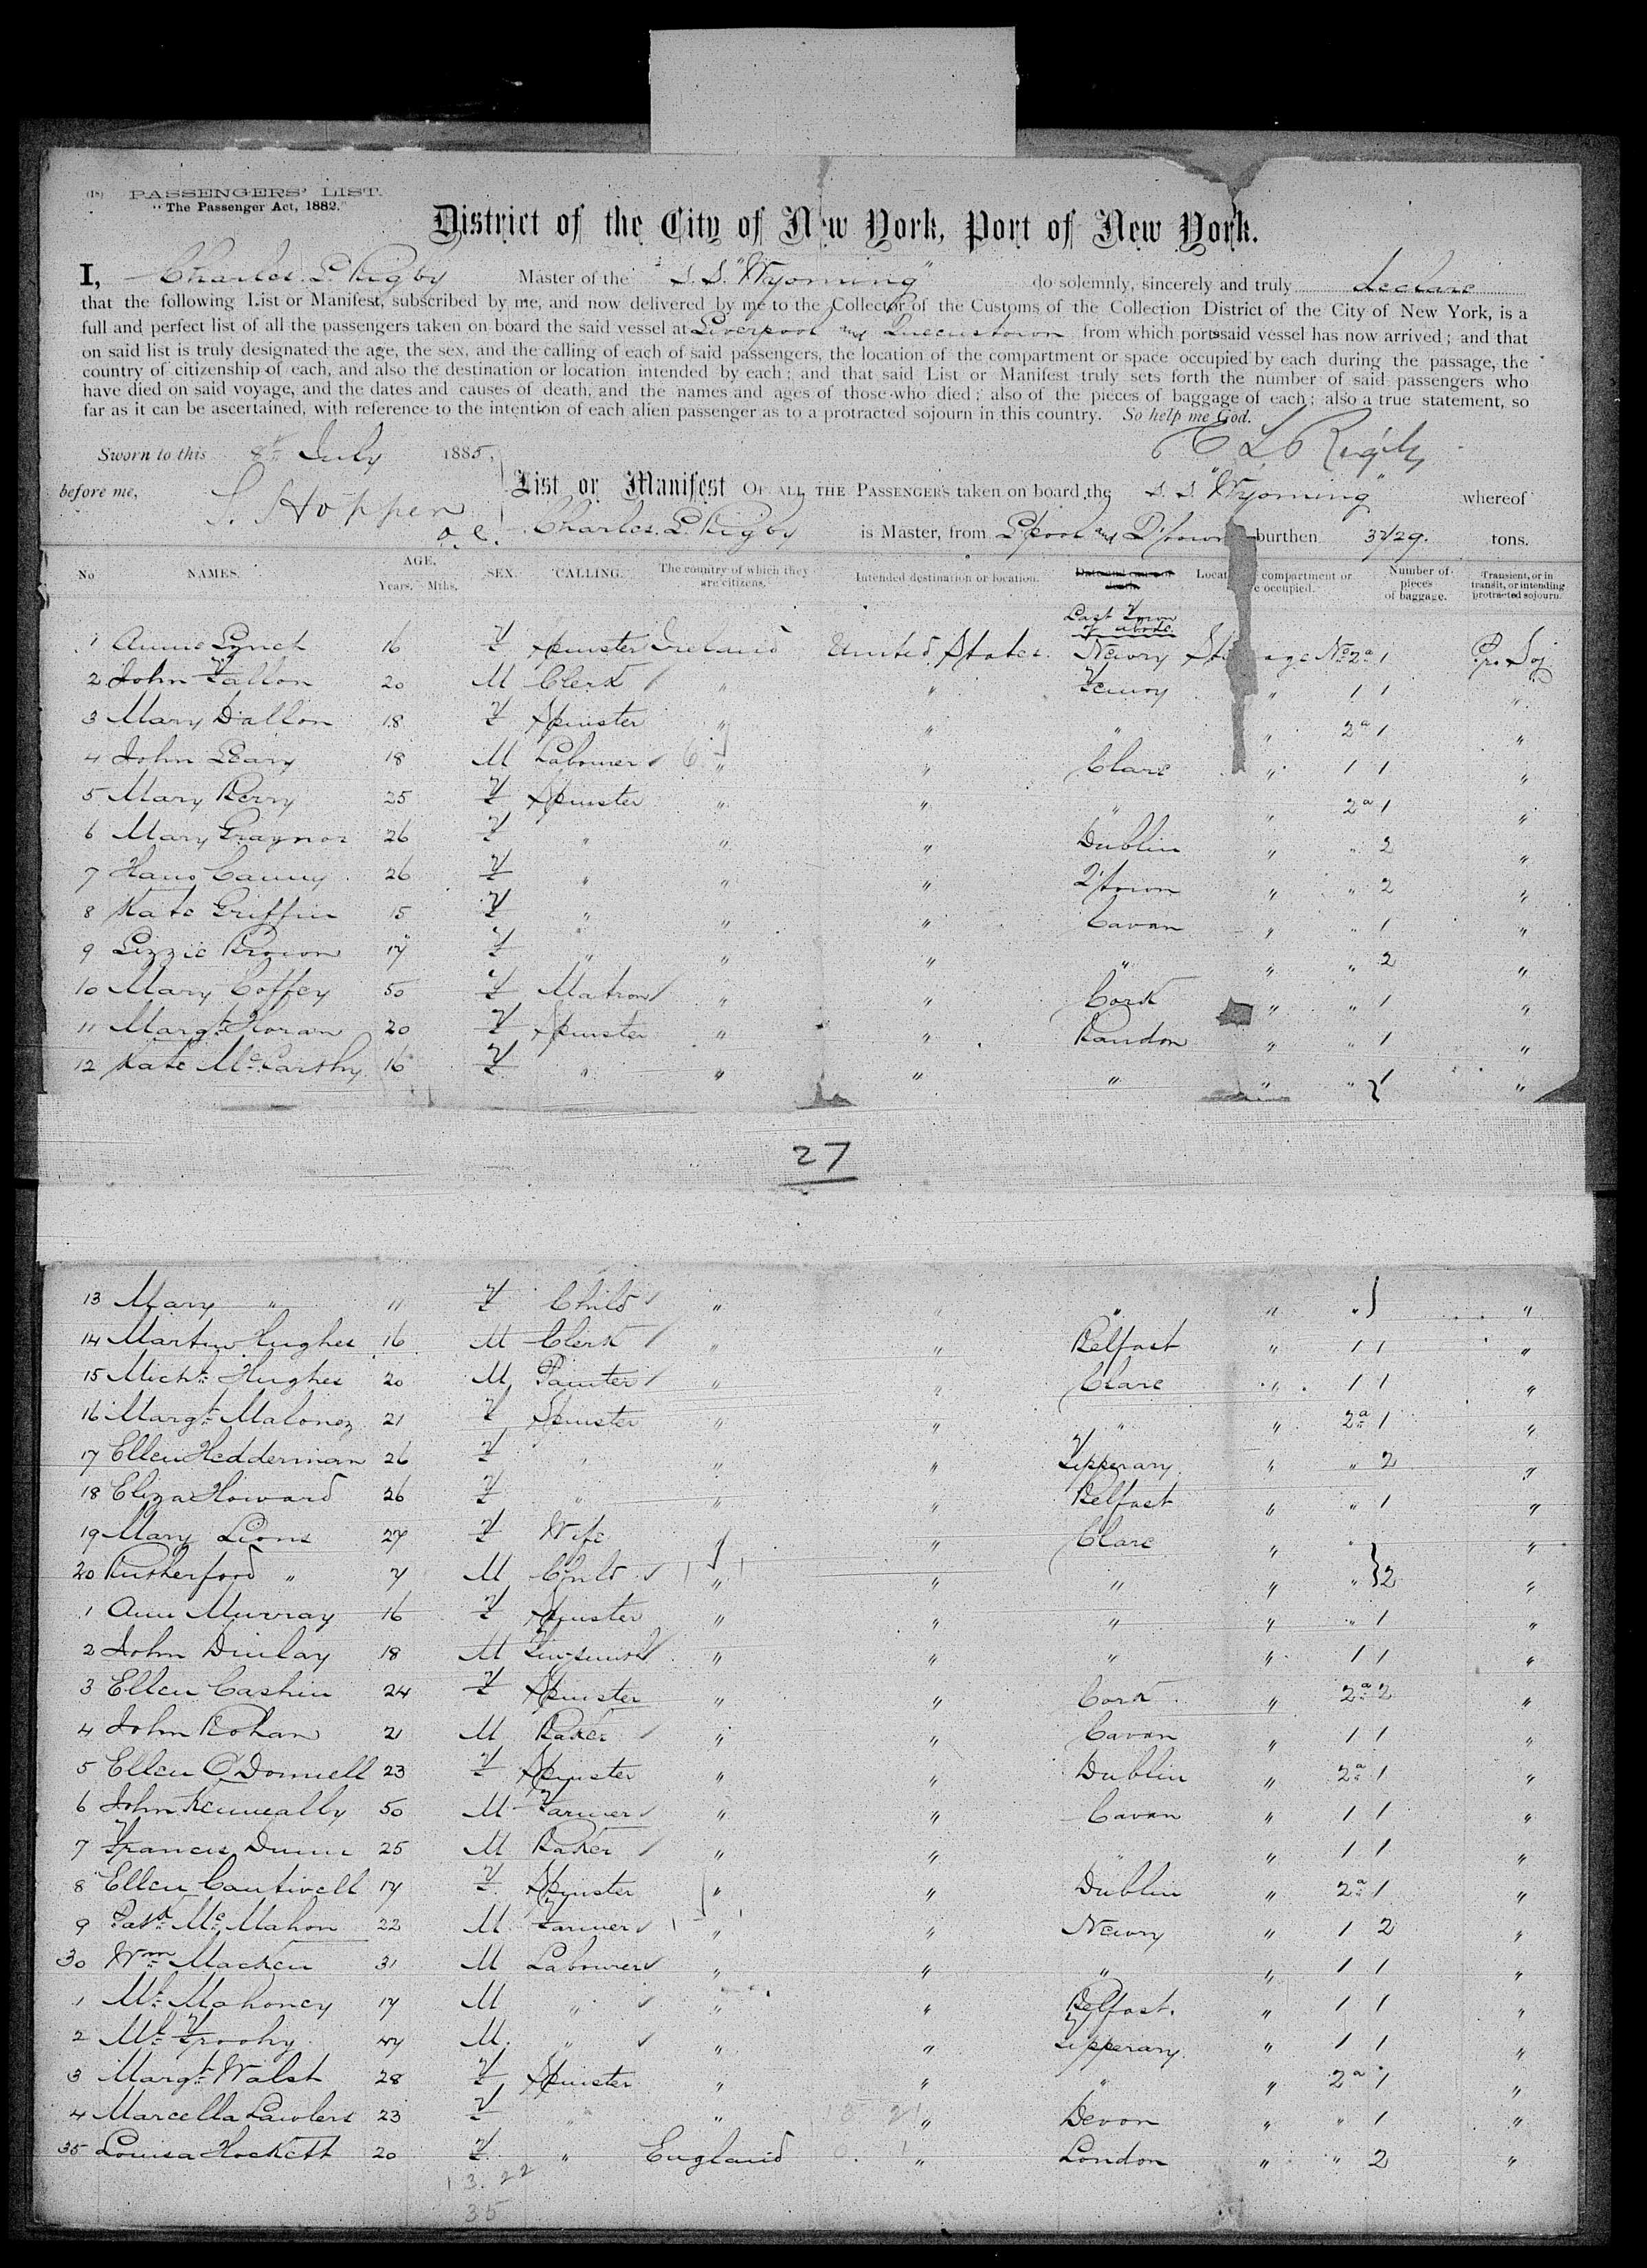 (18) PASSENGERS' LIST.
"The Passenger Act, 1882."
District of the City of New York, Port of New York.
I, Charles L Rigby Master of the S.S. "Wyoming" do solemnly, sincerely and truly declare
that the following List or Manifest, subscribed by me, and now delivered by me to the Collector of the Customs of the Collection District of the City of New York, is a
full and perfect list of all the passengers taken on board the said vessel at Liverpool and Queenstown from which ports said vessel has now arrived; and that
on said list is truly designated the age, the sex, and the calling of each of said passengers, the location of the compartment or space occupied by each during the passage, the
country of citizenship of each, and also the destination or location intended by each; and that said List or Manifest truly sets forth the number of said passengers who
have died on said voyage, and the dates and causes of death, and the names and ages of those who died; also of the pieces of baggage of each; also a true statement, so
far as it can be ascertained, with reference to the intention of each alien passenger as to a protracted sojourn in this country. So help me God.
Sworn to this 8th July 1885, C L Rigby
before me, S. Hoppen List or Manifest OF ALL THE PASSENGERS taken on board the S.S. "Wyoming" whereof
Charles L. Rigby is Master, from L'pool and Q'town burthen 3729. tons.
No NAMES. AGE, Years, Mths. SEX. CALLING. The country of which they are citizens. Intended destination or location. Date and cause of death. Locat compartment or e occupied. Number of pieces of baggage. Transient, or in transit, or intending protracted sojourn.
Last Town of abode
1 Annie Lynch 16 F Spinster Ireland United States. Newry St age No 2a 1 Pr. Soj
2 John Fallon 20 M Clerk " " Fermoy " 1 1 "
3 Mary Dallon 18 F Spinster " " " " 2a 1 "
4 John Leary 18 M Labourer " " Clare " 1 1 "
5 Mary Berry 25 F Spinster " " " " 2a 1 "
6 Mary Graynor 26 F " " " Dublin " " 2 "
7 Hans Canny 26 F " " " Q'town " " 2 "
8 Kate Griffin 15 F " " " Cavan " " 1 "
9 Lizzie Brown 17 F " " " " " " 2 "
10 Mary Coffey 50 F Matron " " Cork " " 1 "
11 Margt Horan 20 F Spinster " " Bandon " " 1 "
12 Kate McCarthy 16 F " " " " " " 1 "
27
13 Mary " 11 F Child " " " " " "
14 Martin Hughes 16 M Clerk " " Belfast " 1 1 "
15 Michl Hughes 20 M Painter " " Clare " 1 1 "
16 Margt Maloney 21 F Spinster " " " " 2a 1 "
17 Ellen Hedderman 26 F " " " Tipperary " " 2 "
18 Eliza Howard 26 F " " " Belfast " " 1 "
19 Mary Lions 27 F Wife " " Clare " " "
20 Rutherford " 7 M Child " " " " " 2 "
1 Ann Murray 16 F Spinster " " " " " 1 "
2 John Dinlay 18 M Tin-smith " " " " 1 1 "
3 Ellen Cashin 24 F Spinster " " Cork " 2a 2 "
4 John Bohan 21 M Baker " " Cavan " 1 1 "
5 Ellen O'Donnell 23 F Spinster " " Dublin " 2a 1 "
6 John Kenneally 50 M Farmer " " Cavan " 1 1 "
7 Francis Dunn 25 M Baker " " " " 1 1 "
8 Ellen Cantwell 17 F Spinster " " Dublin " 2a 1 "
9 Patk McMahon 22 M Farmer " " Newry " 1 2 "
30 Wm Macken 31 M Labourer " " " " 1 1 "
1 Ml Mahoney 17 M " " " Belfast. " 1 1 "
2 Ml Froohy 47 M. " " " Tipperary " 1 1 "
3 Margt Walsh 28 F Spinster " " " " 2a 1 "
4 Marcella Lawlers 23 F " " " Devon " " 1 "
35 Louisa Hockett 20 F " England " London " " 2 "
13. 22
35